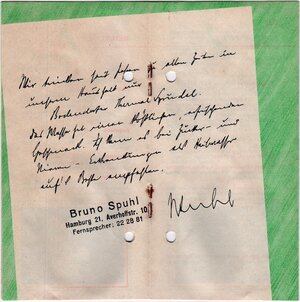 Wir trinken seit Jahren zu allen Zeiten in
unserem Haushalt nur
Bodendorfer Thermal Sprudel.
Das Wasser ist einen köstlichen, erfrischenden
Geschmack. Ich kann es bei Zucker- und
Nieren-Erkrankungen als Heilwasser
auf's Beste empfehlen.
Bruno Spuhl
Hamburg 21, Averhoffstr. 10
Fernsprecher: 22 28 81